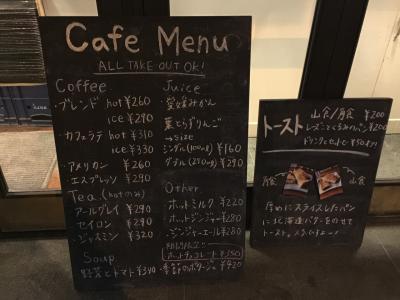 Cafe Menu
ALL TAKE OUT OK!
Coffee
・ブレンド hot ¥260
ice ¥290
・カフェラテ hot ¥310
ice ¥330
・アメリカン ¥260
・エスプレッソ ¥290
Tea (hotのみ)
・アールグレイ ¥290
・セイロン ¥290
・ジャスミン ¥320
Soup
野菜とトマト ¥390
Juice
・愛媛みかん
・葉とらずりんご
→ SIZE
シングル(100ml) ¥160
ダブル(250ml) ¥290
Other
・ホットミルク ¥220
・ホットジンジャー ¥280
・ジンジャーエール ¥280
ホットチョコレート ¥350
・季節のポタージュ ¥420
トースト
山食/角食 ¥200
レーズンとくるみパン ¥200
ドリンクとセットで ¥50オフ!
角食
山食
厚めにスライスしたパン
に北海道バターをのせて
トースト。